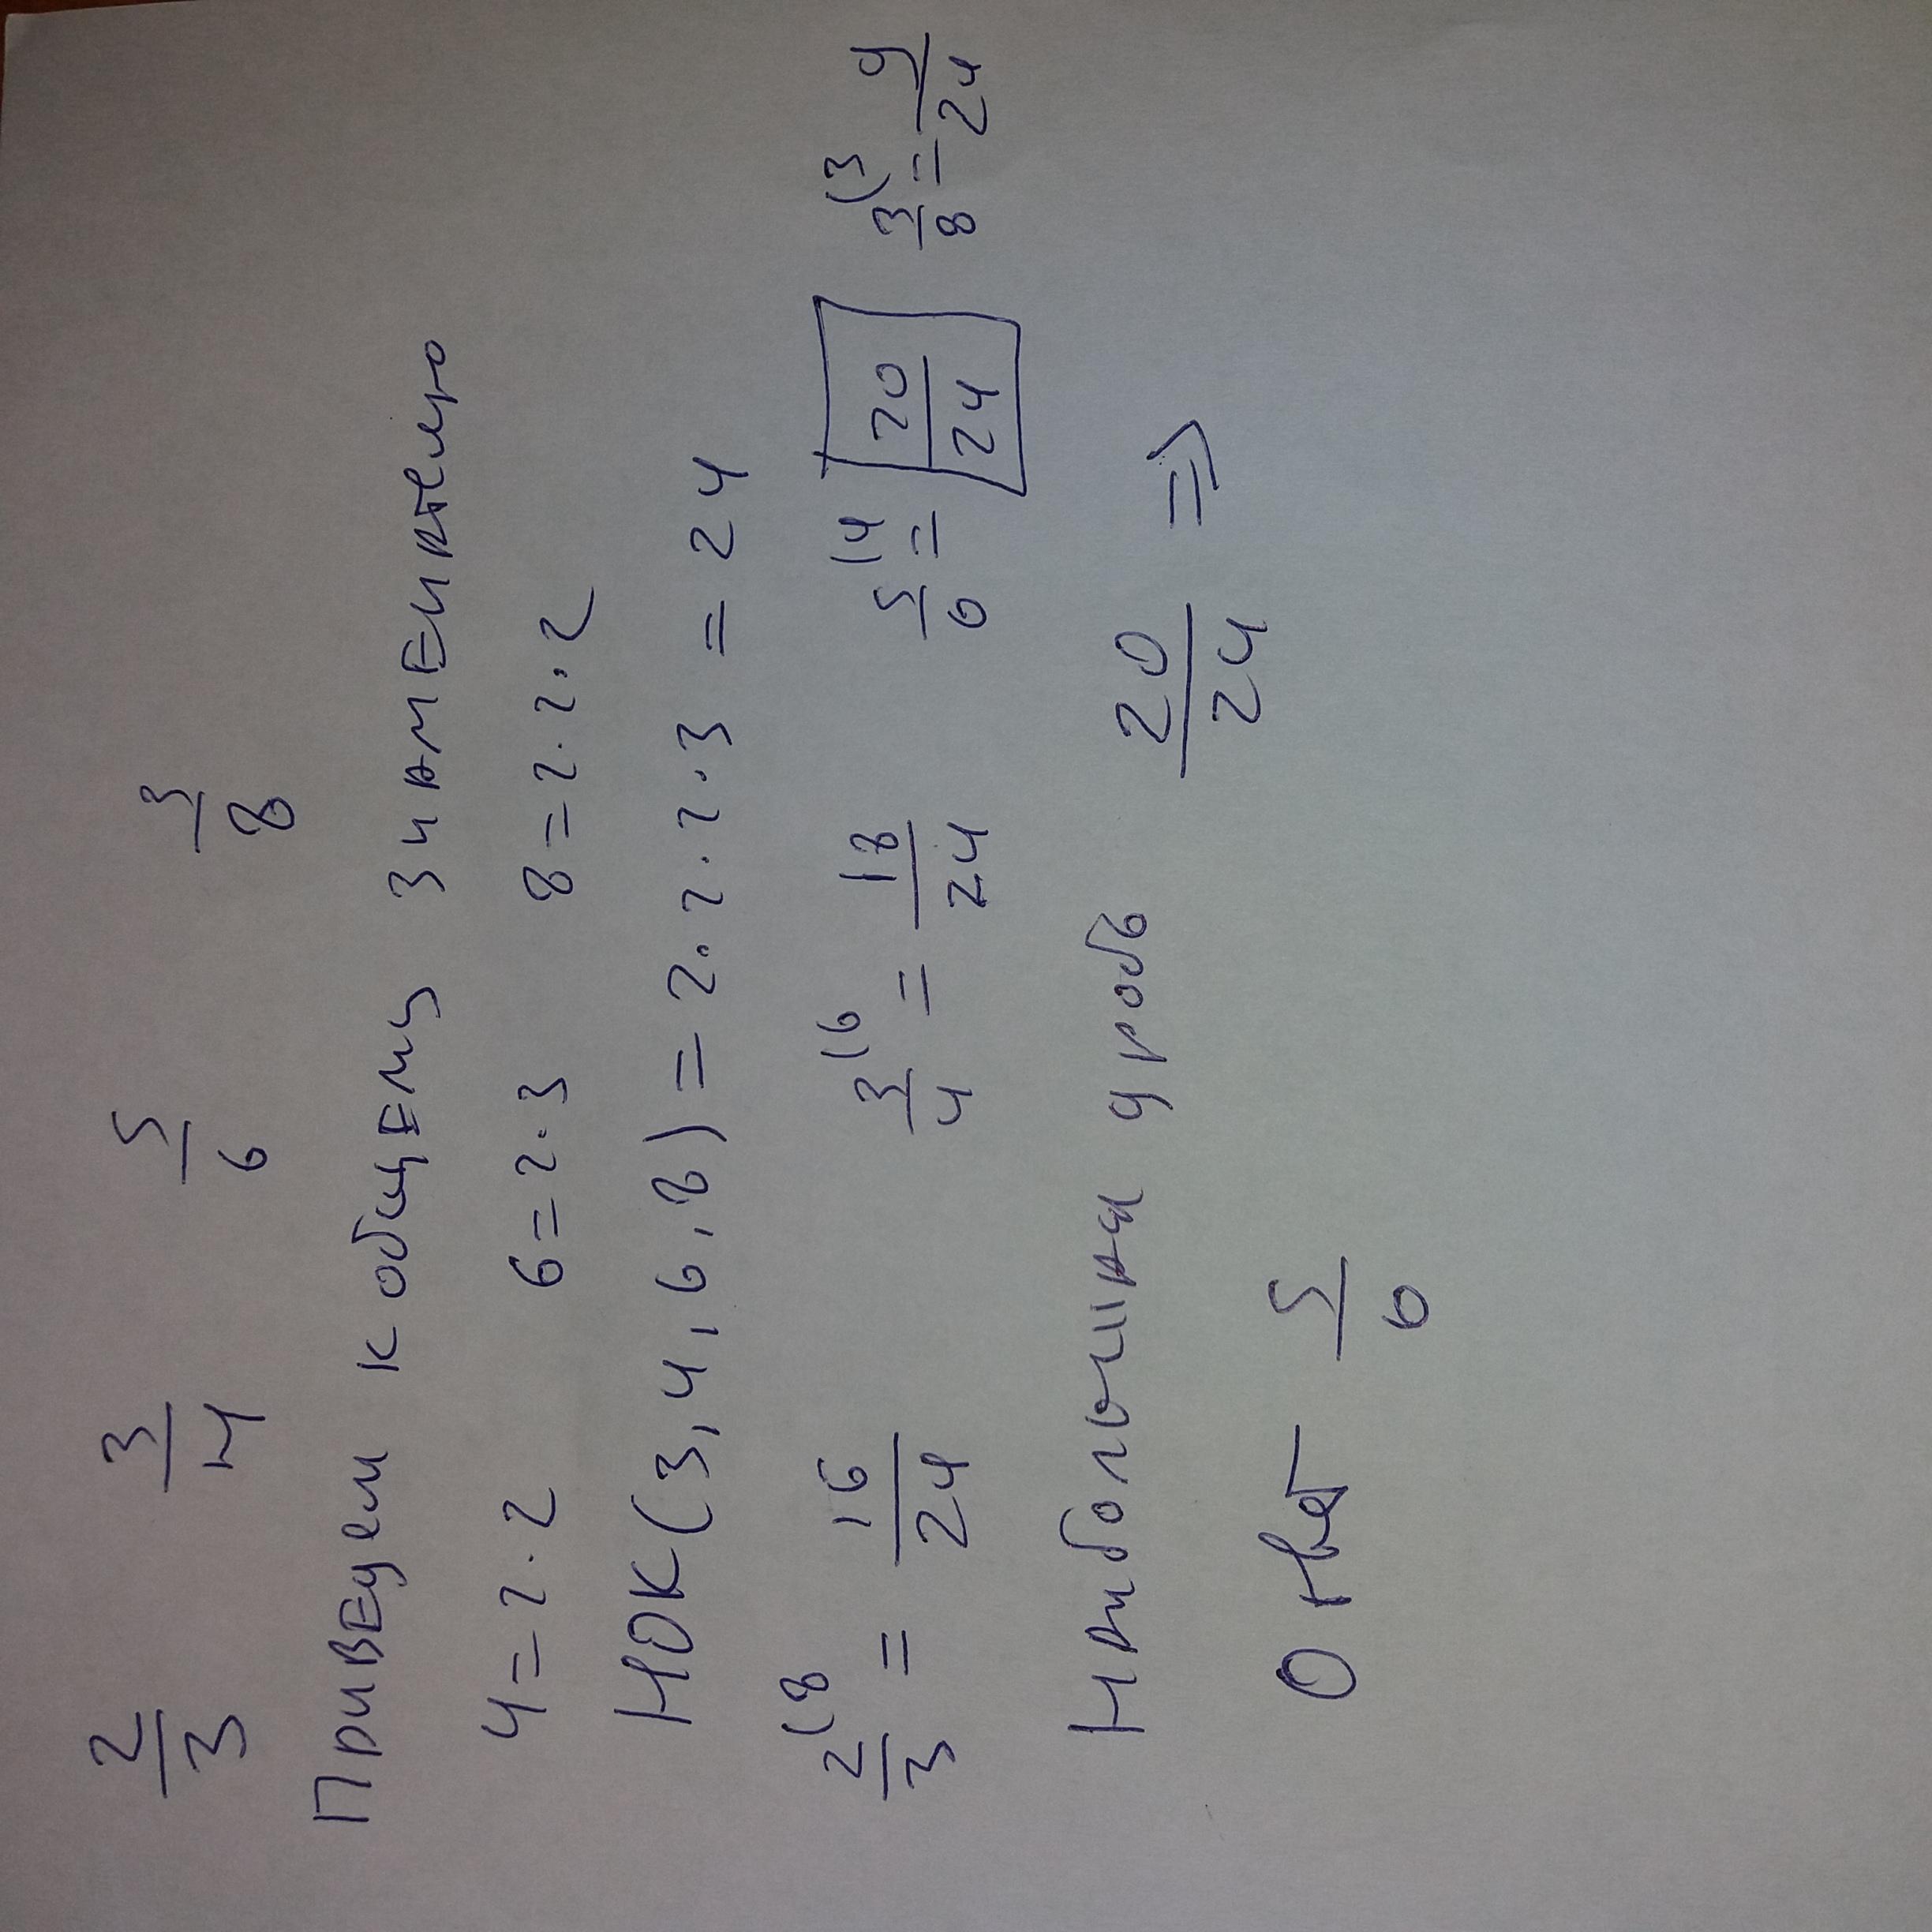 2/3 3/4 5/6 3/8
Приведем к общему знаменителю
4=2·2 6=2·3 8=2·2·2
НОК(3,4,6,8)=2·2·2·3=24
2/3(8 = 16/24 3/4(6 = 18/24 5/6(4 = 20/24 3/8(3 = 9/24
Наибольшая дробь 20/24 ⇒
Ответ 5/6